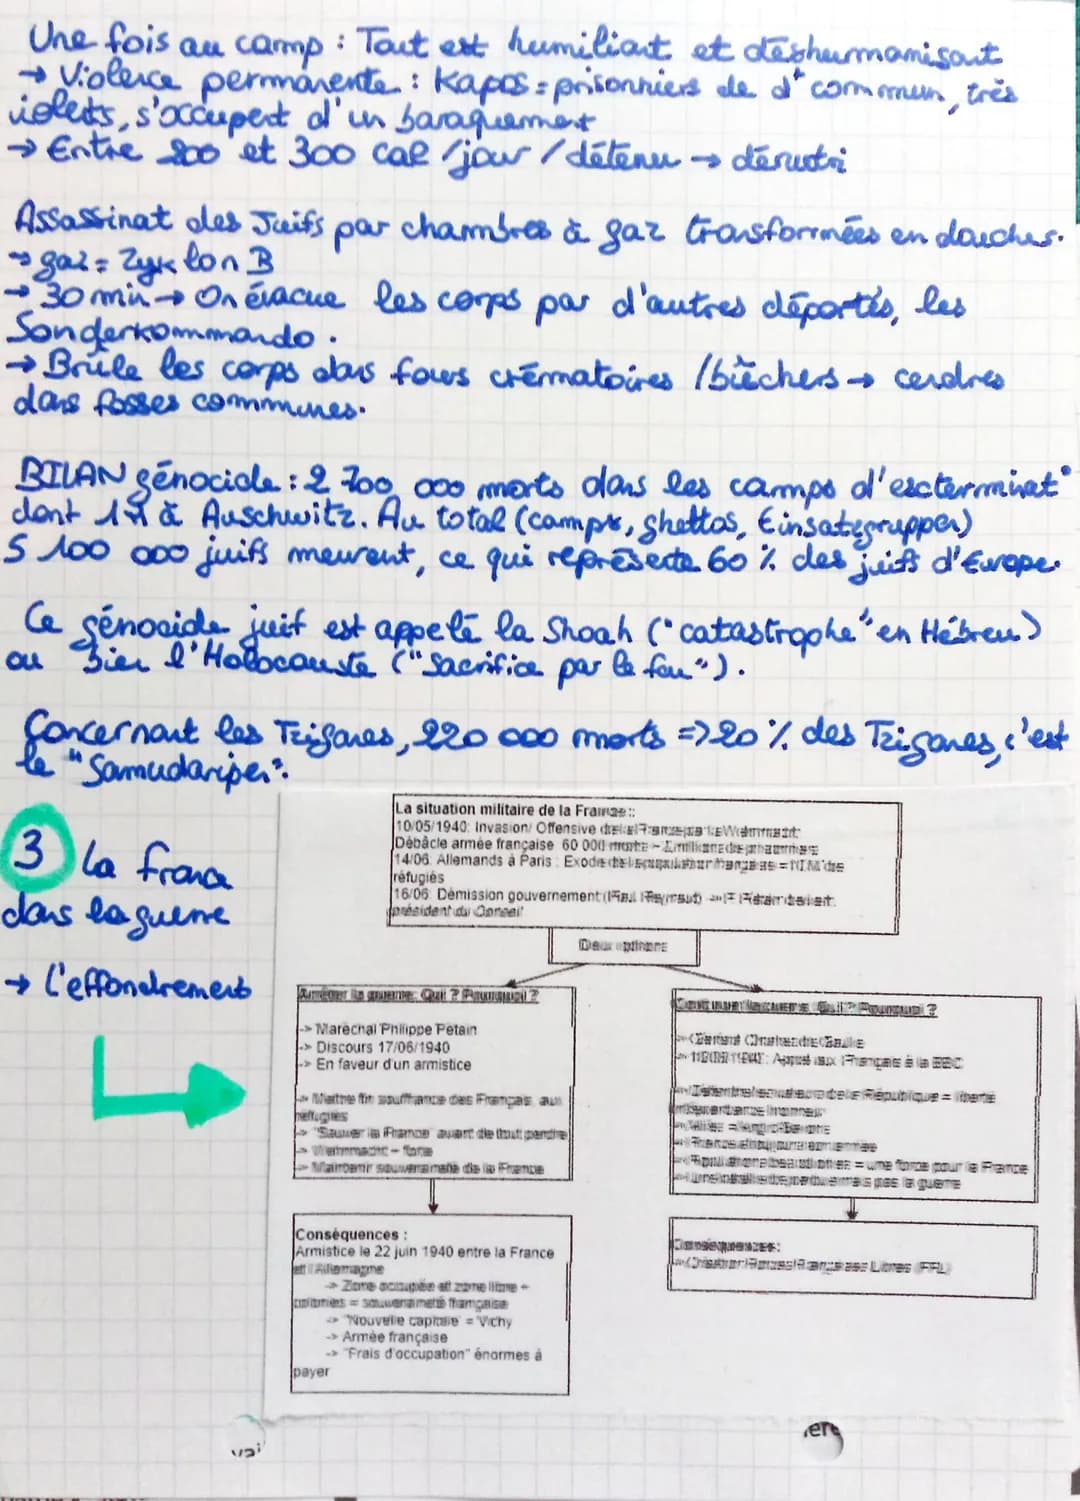 Une fois au camp : Tout est humiliant et déshumanisant
→ Violence permanente : Kapos = prisonniers de d^t commun, très
violents, s'occupent d'un baraquement
→ Entre 200 et 300 cal /jour / détenu → dénutri
Assassinat des Juifs par chambres à gaz transformées en douches.
→ gaz = Zyklon B
→ 30 min → On évacue les corps par d'autres déportés, les
Sonderkommando.
→ Brûle les corps dans fours crématoires / bûchers → cendres
dans fosses communes.
BILAN génocide : 2 700 000 morts dans les camps d'exterminat°
dont 1M à Auschwitz. Au total (camps, ghettos, Einsatzgruppen)
5 100 000 juifs meurent, ce qui représente 60 % des juifs d'Europe.
Ce génocide juif est appelé la Shoah ("catastrophe" en Hébreu)
ou bien l'Holocauste ("Sacrifice par le feu").
Concernant les Tziganes, 220 000 morts => 20 % des Tziganes, c'est
le "Samudaripen".
3 La france
dans la guerre
→ L'effondrement
La situation militaire de la France :
10/05/1940: Invasion/ Offensive de la France par la Wehrmacht
Débâcle armée française 60 000 morts
14/06: Allemands à Paris : Exode
réfugiés
16/06: Démission gouvernement (Paul Reynaud) Pétain devient
président du Conseil
Deux options
Arrêter la guerre: Qui ? Pourquoi ?
-> Maréchal Philippe Pétain
-> Discours 17/06/1940
-> En faveur d'un armistice
-> Mettre fin souffrance des Français, aux
réfugiés
-> "Sauver la France" avant de tout perdre
-> Wehrmacht = forte
-> Maintenir souveraineté de la France
Conséquences :
Armistice le 22 juin 1940 entre la France
et l'Allemagne
-> Zone occupée et zone libre +
colonies = souveraineté française
-> "Nouvelle capitale" = Vichy
-> Armée française
-> "Frais d'occupation" énormes à
payer
Continuer la guerre: Qui? Pourquoi ?
Charles de Gaulle
Appel aux Français à la BBC
de la République = liberté
= une force pour la France
mais pas la guerre
Conséquences:
Forces Françaises Libres (FFL)